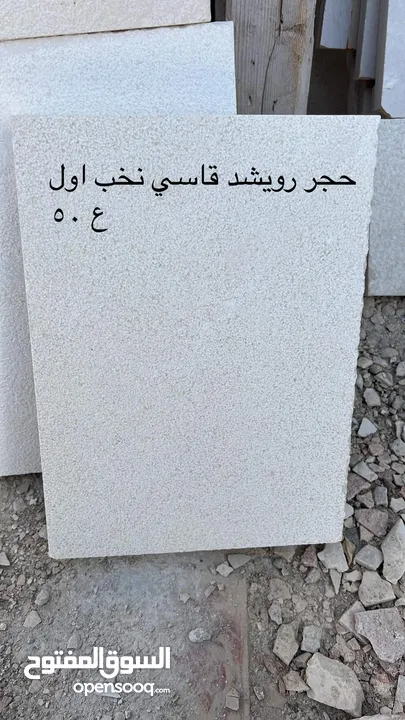 حجر رويشد قاسي نخب اول
ع ٥٠
السوق المفتوح
opensooq.com